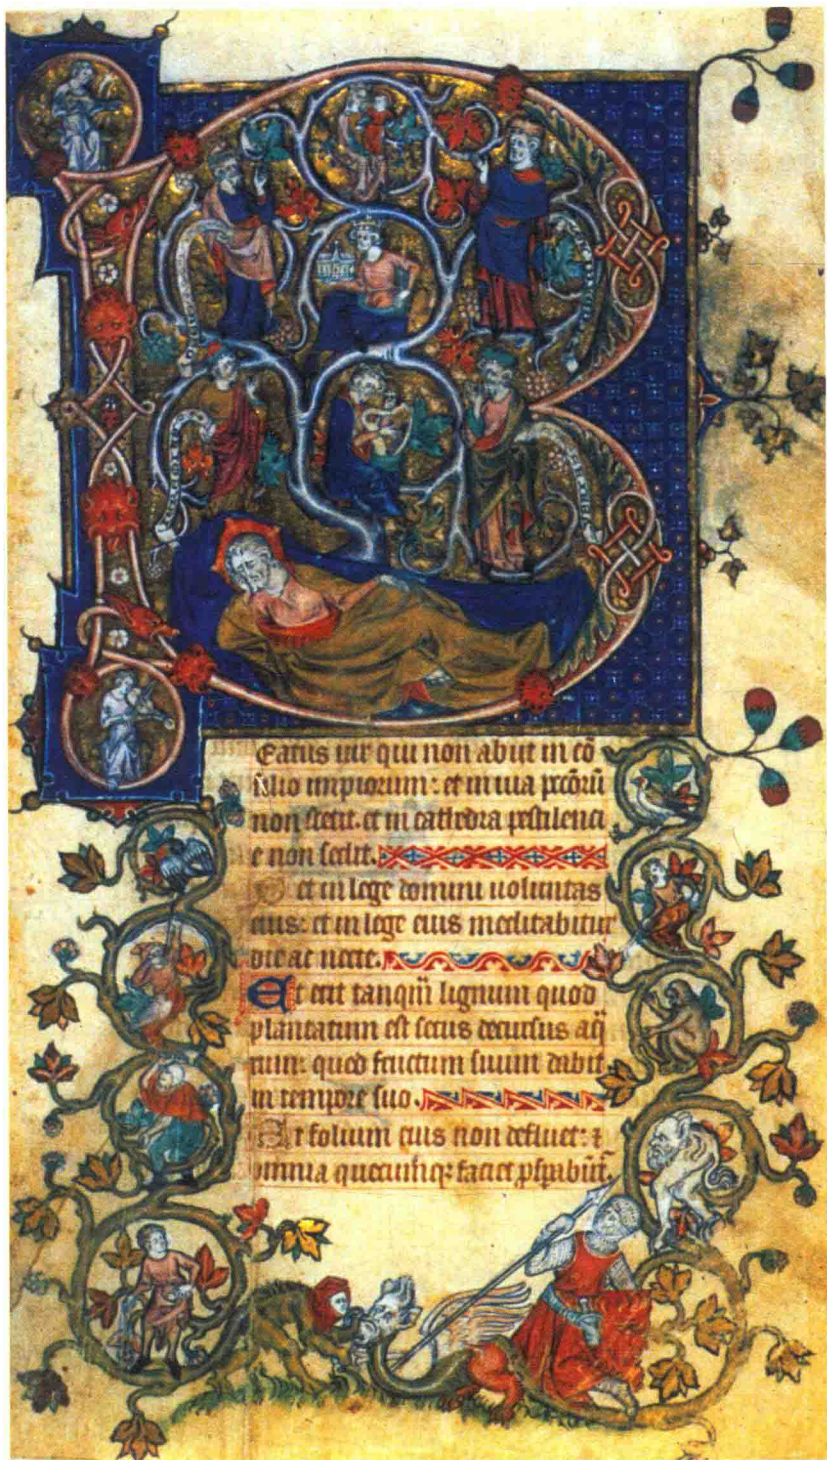 B
Eatus uir qui non abiit in cō
silio impiorum: et in uia pccōrū
non stetit. et in cathedra pestilenci
e non sedit.
et in lege domini uoluntas
eius: et in lege eius meditabitur
die ac nocte.
Et erit tanqm̄ lignum quod
plantatum est secus decursus aq̄
rum: quod fructum suum dabit
in tempore suo.
Et folium eius non defluet: ⁊
omnia quecumq; faciet